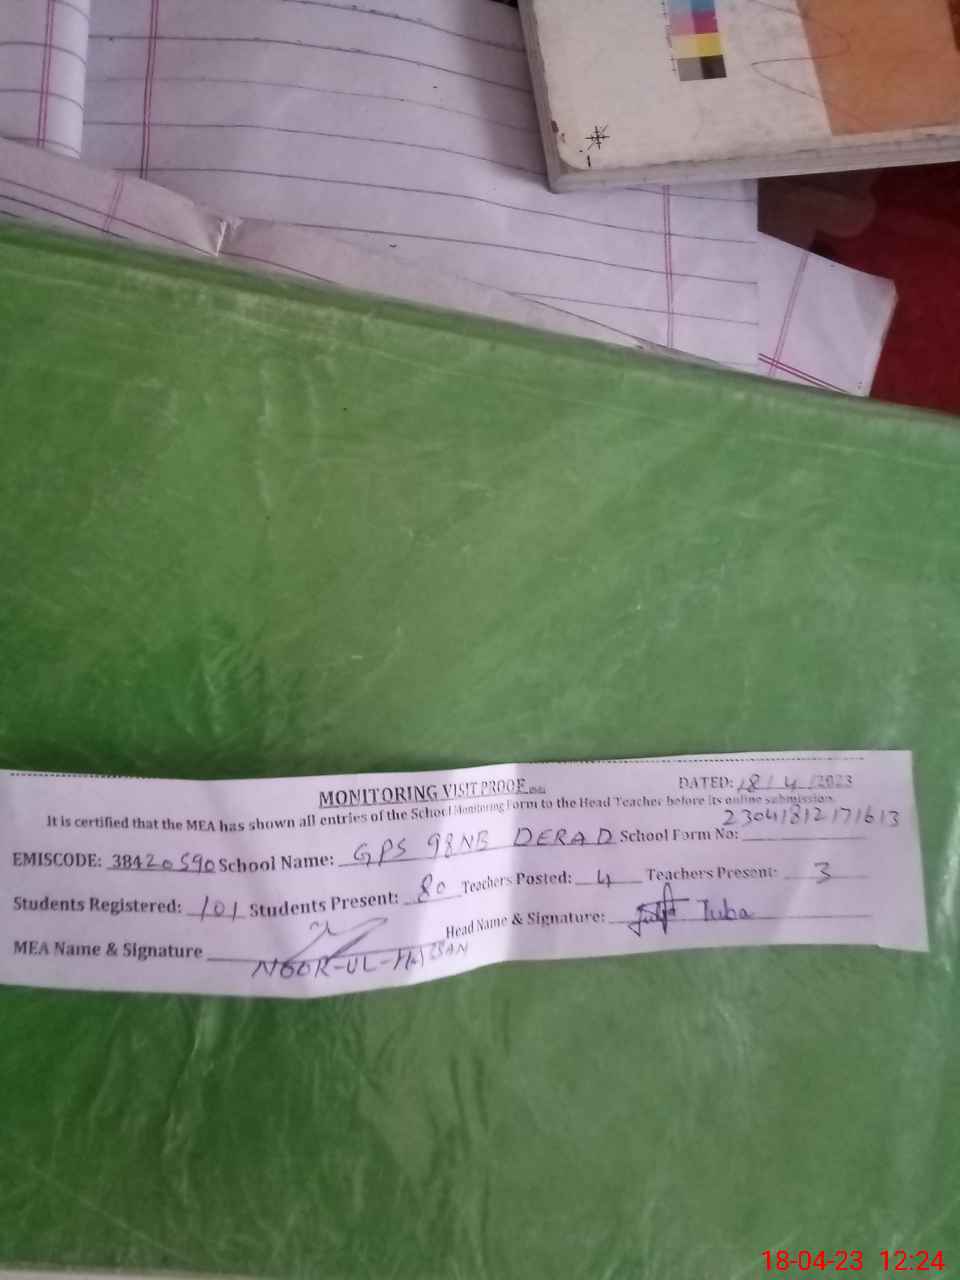 MONITORING VISIT PROOF
DATED: 18/4/2023
It is certified that the MEA has shown all entries of the School Monitoring Form to the Head Teacher before its online submission.
EMISCODE: 38420590 School Name: GPS 98NB DERAD School Form No: 23041812171613
Students Registered: 101 Students Present: 80 Teachers Posted: 4 Teachers Present: 3
MEA Name & Signature NOOR-UL-HASSAN Head Name & Signature: Tuba
18-04-23 12:24